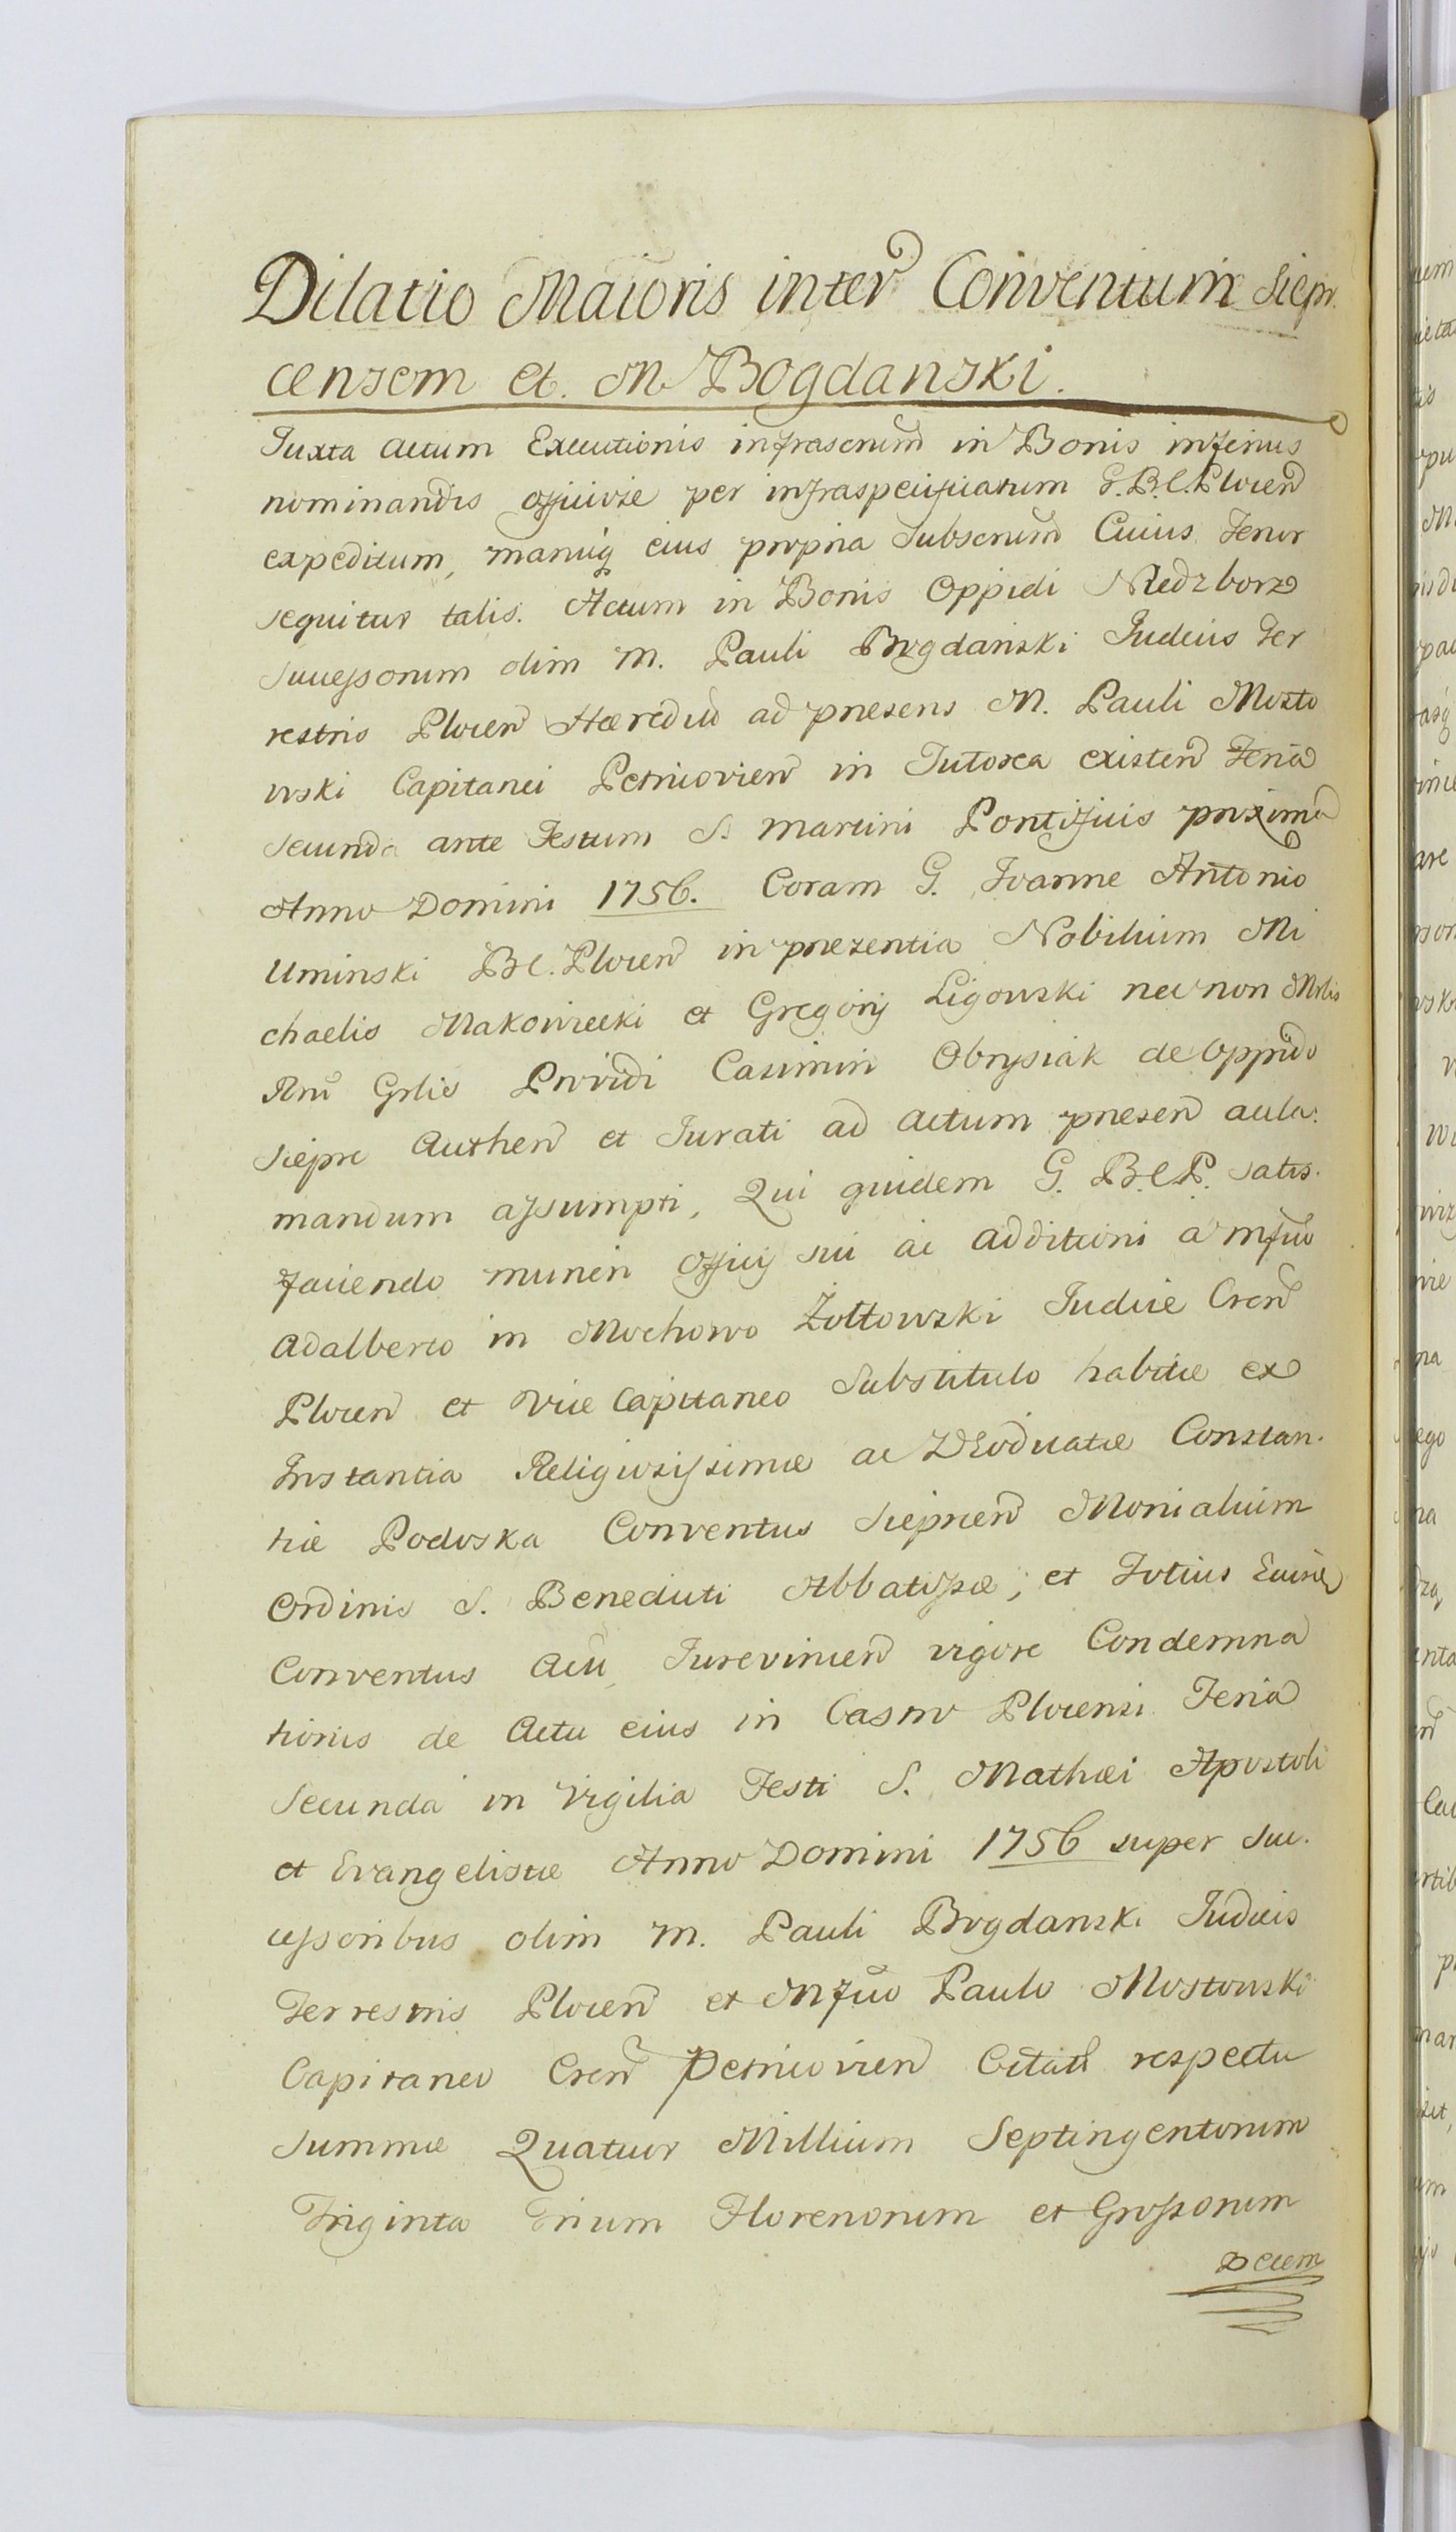 Dilatio Maioris inter Conventum Siepr.
censem et. M Bogdanski.
Iuxta actum Executionis infrascrium in Bonis inferius
nominandis officiose per infraspecificatum G.B.C. Plocen
expeditum, manuq eius propria Subscrium Cuius Tenor
sequitur talis. Actum in Bonis Oppidi Niedzborz
Successorum olim M. Pauli Bogdanski Iudicis Ter
restris Plocen Hæredu ad præsens M. Pauli Mosto
wski Capitanei Petricovien in Tutorea existen Feria
secunda ante Festum S. Martini Pontificis proxima
Anno Domini 1756. Coram G. Ioanne Antonio
Uminski B C. Plocen in præzentia Nobilium Mi
chaelis Makowiecki et Gregorij Ligowski nec non Mrlis
Rni Grlis Providi Casimiri Obrysiak de Oppido
Siepre Authen et Iurati ad actum præsen acla.
mandum assumpti, Qui quidem G. B.C.P. satis.
faciendo muneri officij sui ac additioni a Mfco
Adalberto in Mochowo Żołtowski Iudice Cren
Plocen et Vice Capitaneo Substituto habitæ ex
Instantia Religiosissimæ ac Deodicatæ Constan.
tiæ Podoska Conventus Sieprcen Monialium
Ordinis S. Benedicti Abbatissæ; et Totius Eiusd
Conventus acu Iurevincen vigore Condemna
tionis de Actu eius in Castro Plocensi Feria
Secunda in Vigilia Festi S. Mathæi Apostoli
et Evangelistæ Anno Domini 1756 super Suc.
cessoribus olim M. Pauli Bogdanski Iudicis
Terrestris Plocen et Mfco Paulo Mostowski
Capitaneo Cren Petricovien Citatis respectu
Summæ Quatuor Millium Septingentorum
Triginta Trium Florenorum et Grossorum
Decem